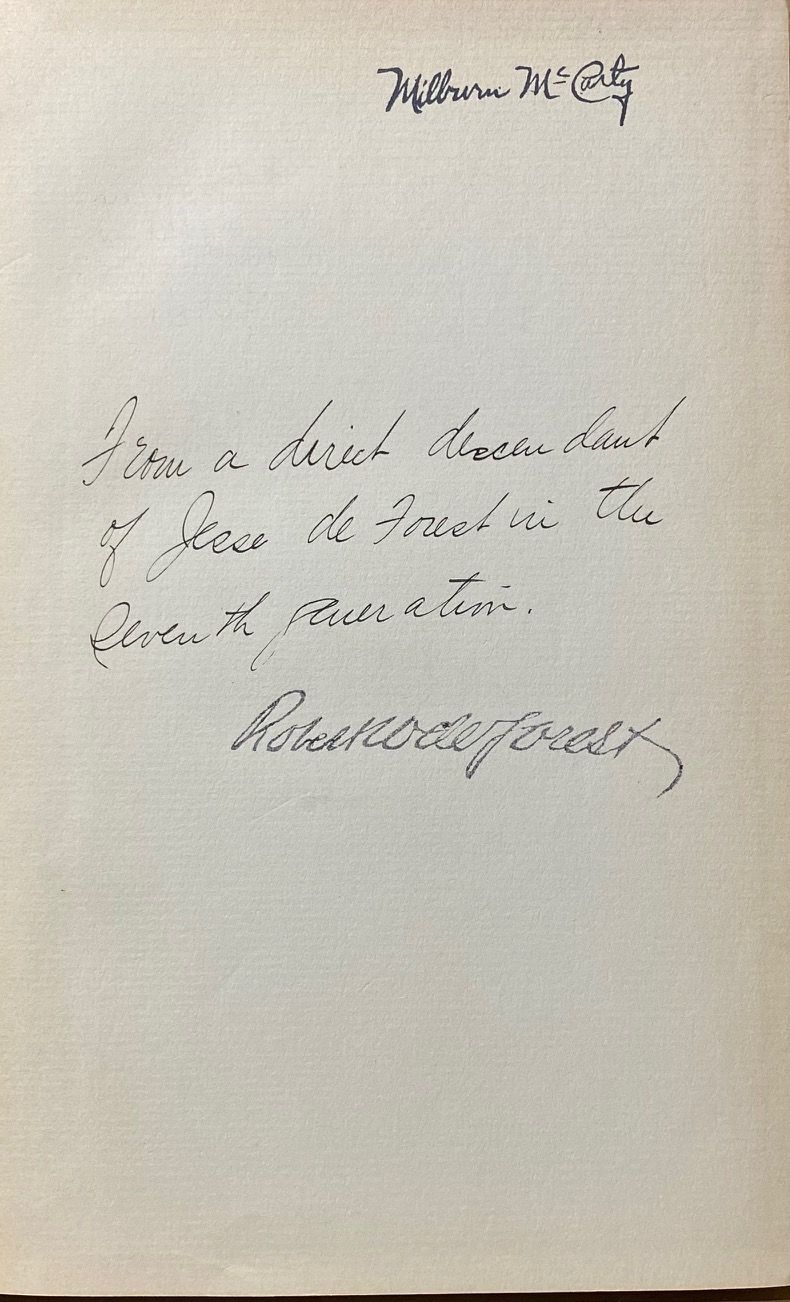 Milburn McCarty
From a direct descendant
of Jesse de Forest in the
seventh generation.
Robert W de Forest